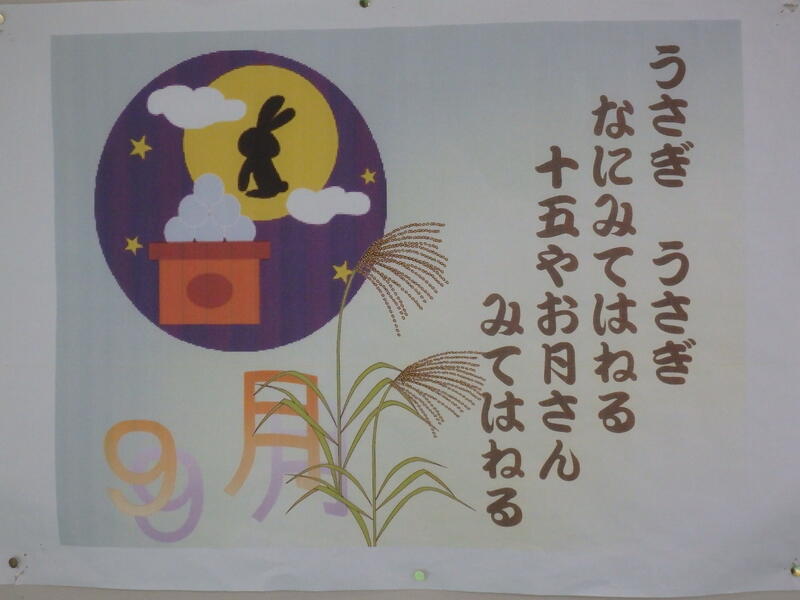 うさぎ　うさぎ
なにみてはねる
十五やお月さん
みてはねる
9月